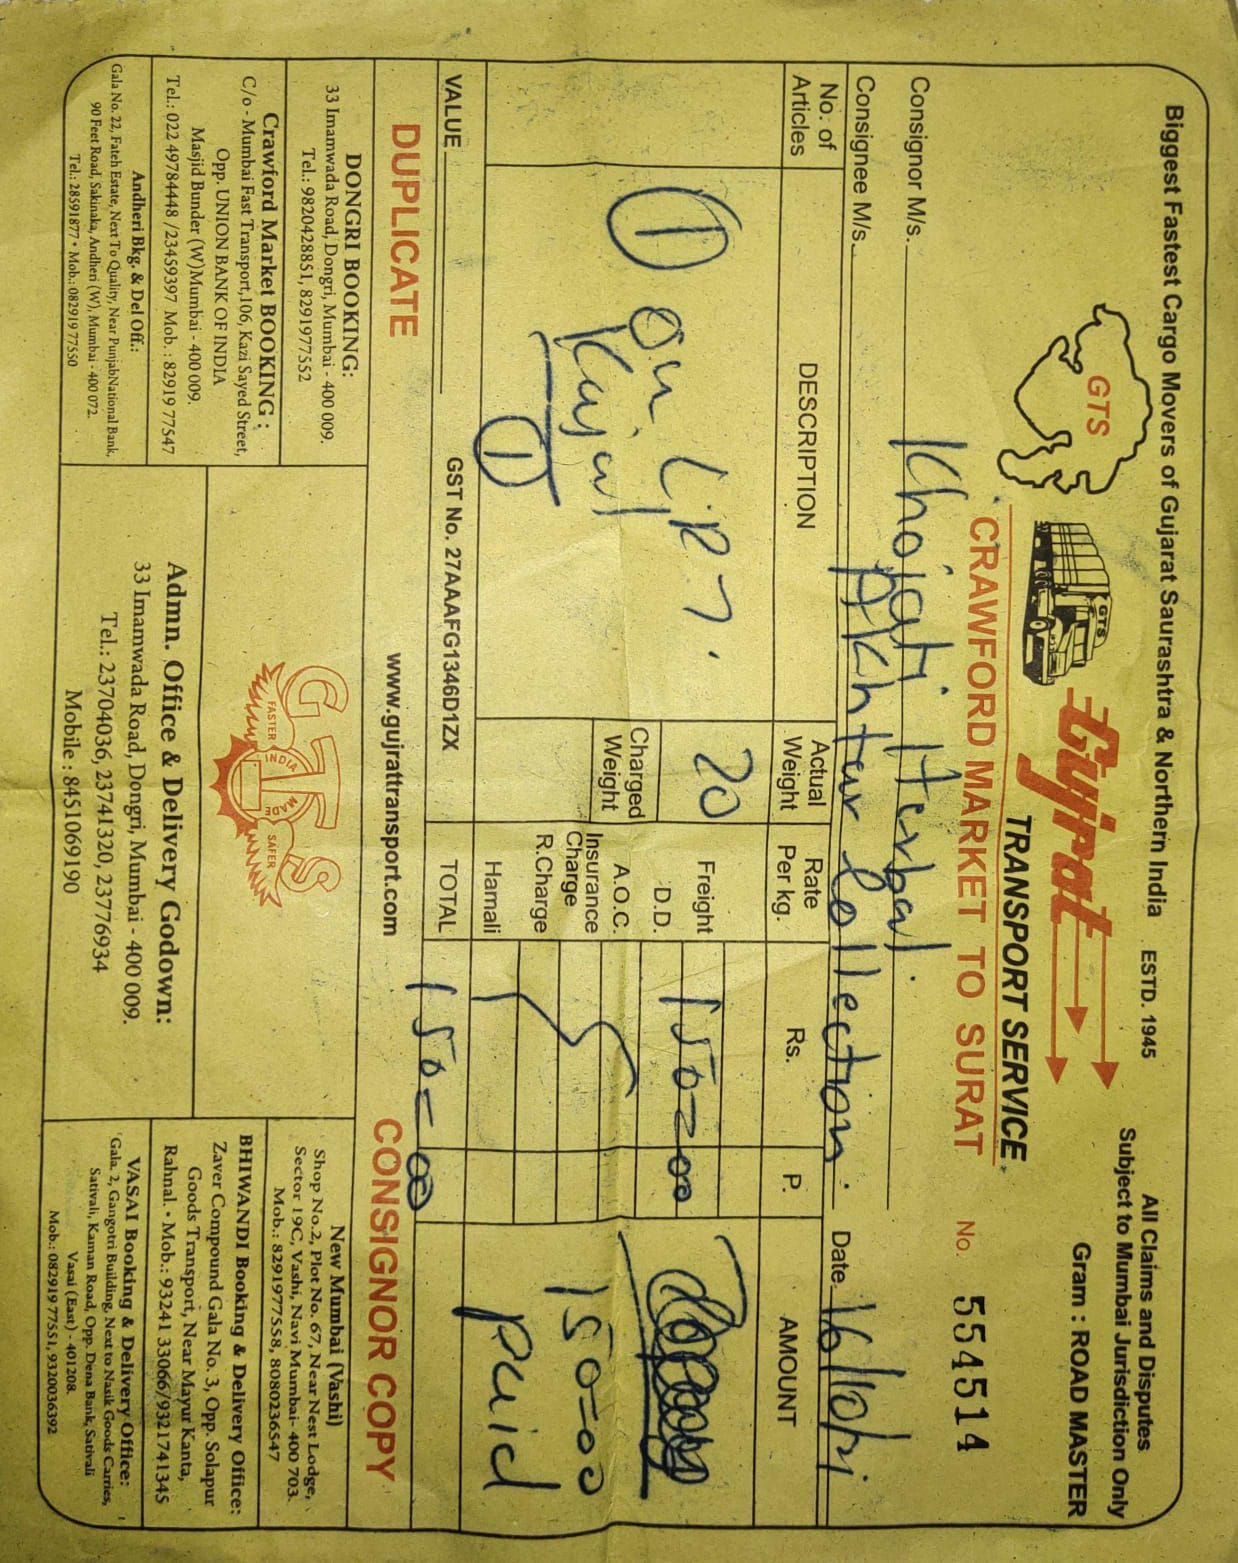 Biggest Fastest Cargo Movers of Gujarat Saurashtra & Northern India ESTD. 1945
All Claims and Disputes
Subject to Mumbai Jurisdiction Only
Gram : ROAD MASTER
GTS
GTS
Gujrat
TRANSPORT SERVICE
CRAWFORD MARKET TO SURAT
No. 554514
Consignor M/s. Khojati Herbal.
Consignee M/s. Akhtar Collection. Date
No. of Articles
DESCRIPTION
Actual Weight
Rate Per kg.
Rs.
P.
AMOUNT
1
20
Freight
150=00
D.D.
Kajal
Charged Weight
A.O.C.
Insurance Charge
150=00
1
R.Charge
Hamali
Paid
VALUE
GST No. 27AAAFG1346D1ZX
TOTAL
150=00
DUPLICATE
www.gujrattransport.com
CONSIGNOR COPY
DONGRI BOOKING:
33 Imamwada Road, Dongri, Mumbai - 400 009.
Tel.: 9820428851, 8291977552
Crawford Market BOOKING :
C/o - Mumbai Fast Transport,106, Kazi Sayed Street,
Opp. UNION BANK OF INDIA
Masjid Bunder (W)Mumbai - 400 009.
Tel.: 022 49784448 /23459397 Mob. : 82919 77547
Andheri Bkg. & Del Off.:
Gala No. 22, Fateh Estate, Next To Quality, Near PunjabNational Bank,
90 Feet Road, Sakinaka, Andheri (W), Mumbai - 400 072.
Tel.: 28591877 • Mob.: 082919 77550
GTS
FASTER
INDIA
MADE
SAFER
Admn. Office & Delivery Godown:
33 Imamwada Road, Dongri, Mumbai - 400 009.
Tel.: 23704036, 23741320, 23776934
Mobile : 8451069190
New Mumbai (Vashi)
Shop No.2, Plot No. 67, Near Nest Lodge,
Sector 19C, Vashi, Navi Mumbai- 400 703.
Mob.: 8291977558, 8080236547
BHIWANDI Booking & Delivery Office:
Zaver Compound Gala No. 3, Opp. Solapur
Goods Transport, Near Mayur Kanta,
Rahnal. • Mob.: 93241 33066/9321741345
VASAI Booking & Delivery Office:
Gala. 2, Gangotri Building, Next to Nasik Goods Carries,
Sativali, Kaman Road, Opp. Dena Bank, Sativali
Vasai (East) - 401208.
Mob.: 082919 77551, 9320036392